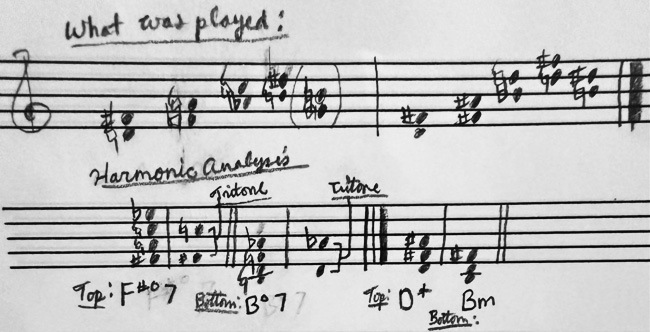 What was played:
Harmonic Analysis
Tritone Tritone
Top: F#o7 Bottom: Bo7 Top: D+ Bm
Bottom: